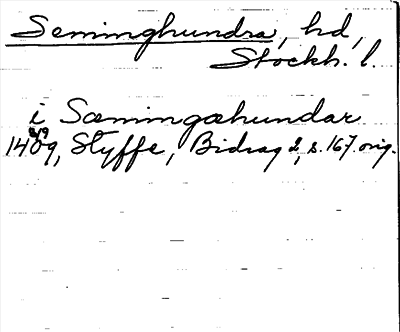 Seminghundra, hd,
Stockh. l.
i Sæmingæhundar
1409, Styffe, Bidrag 2, s. 167. orig.